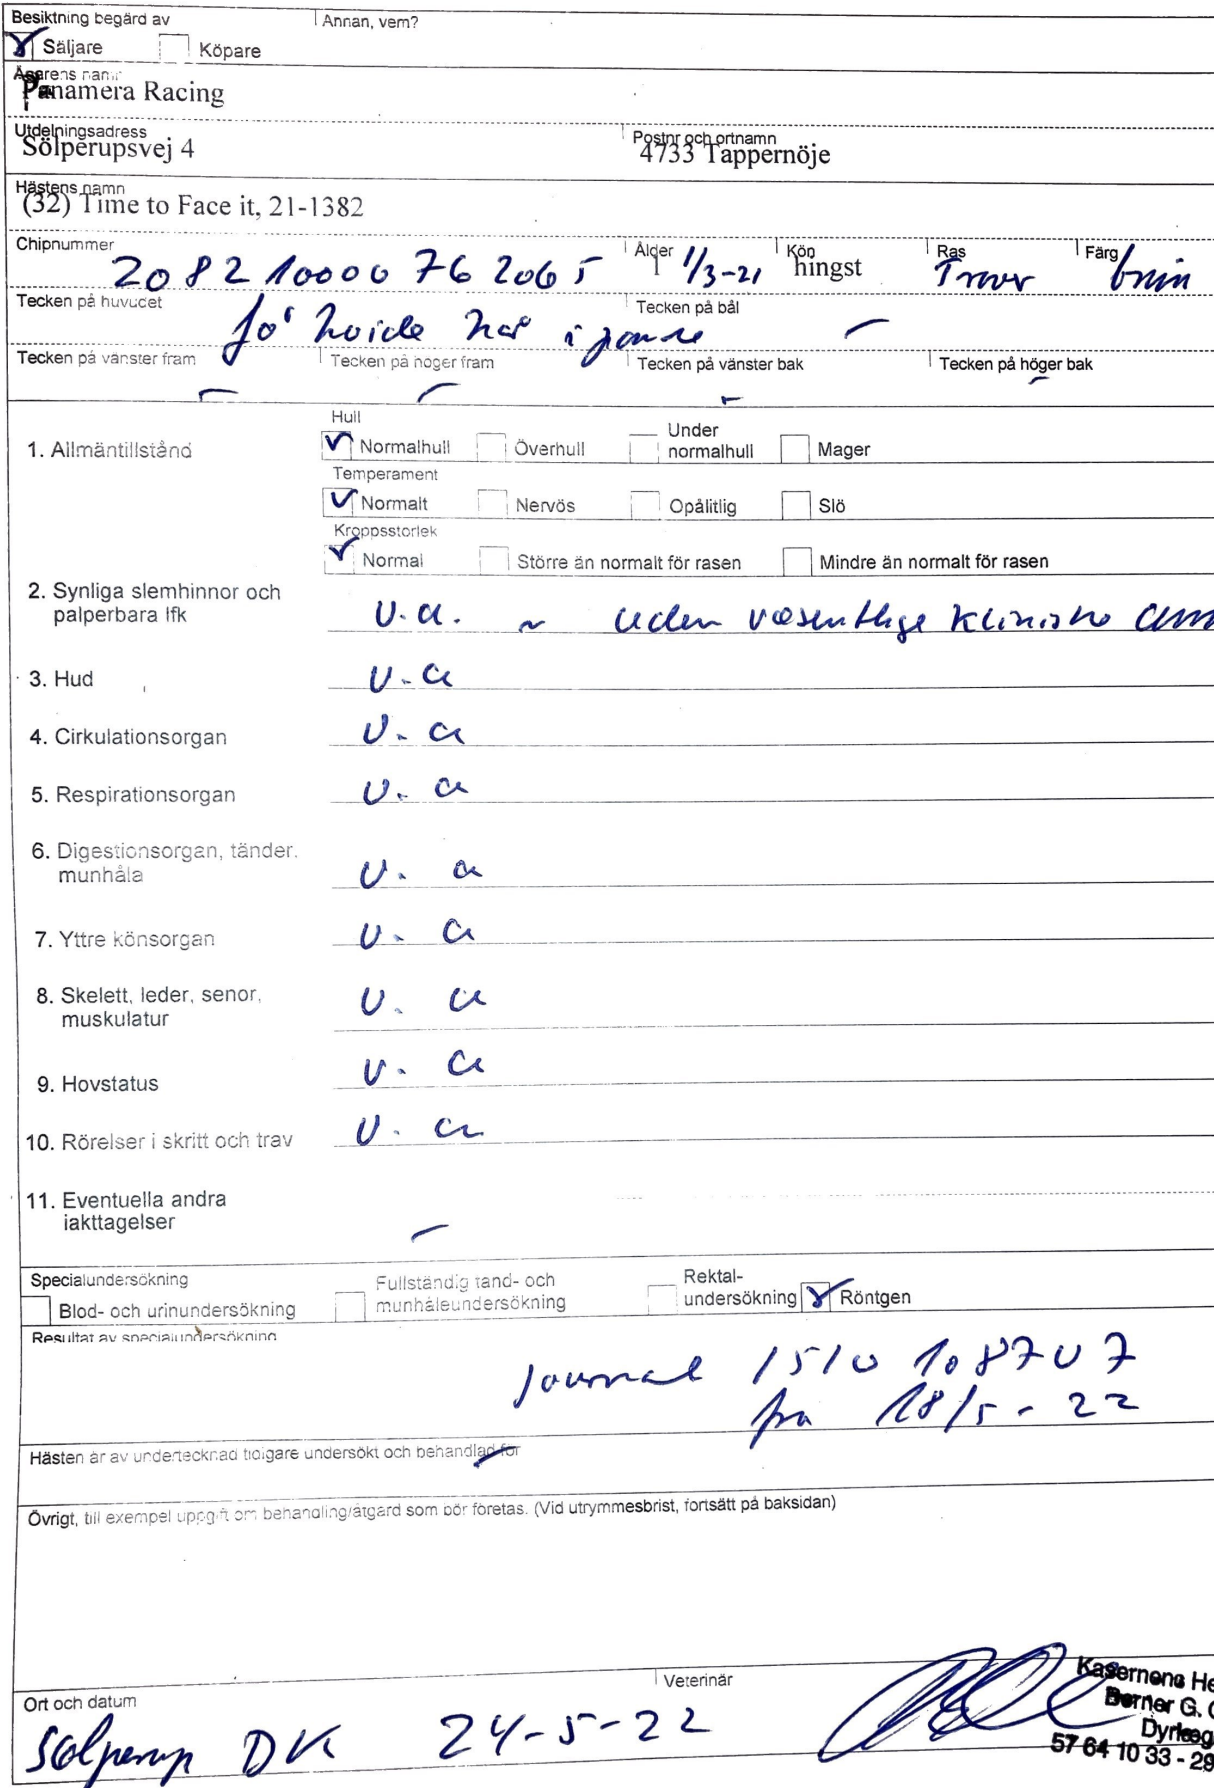 Besiktning begärd av Annan, vem?
Säljare Köpare
Ägarens namn
Panamera Racing
Utdelningsadress Postnr och ortnamn
Sölperupsvej 4 4733 Tappernöje
Hästens namn
(32) Time to Face it, 21-1382
Chipnummer Ålder Kön Ras Färg
208210000762065 1 1/3-21 hingst Traver brun
Tecken på huvudet Tecken på bål
få hvide hår i pande –
Tecken på vänster fram Tecken på höger fram Tecken på vänster bak Tecken på höger bak
– – – –
Hull
1. Allmäntillstånd Normalhull Överhull Under normalhull Mager
Temperament
Normalt Nervös Opålitlig Slö
Kroppsstorlek
Normal Större än normalt för rasen Mindre än normalt för rasen
2. Synliga slemhinnor och
palperbara lfk U.a. ~ uden væsentlige kliniske anm
3. Hud U.a
4. Cirkulationsorgan U.a
5. Respirationsorgan U.a
6. Digestionsorgan, tänder,
munhåla U.a
7. Yttre könsorgan U.a
8. Skelett, leder, senor,
muskulatur U.a
9. Hovstatus U.a
10. Rörelser i skritt och trav U.a
11. Eventuella andra
iakttagelser –
Specialundersökning
Blod- och urinundersökning Fullständig tand- och munhåleundersökning Rektal-undersökning Röntgen
Resultat av specialundersökning
Journal 1510 108707
fra 18/5-22
Hästen är av undertecknad tidigare undersökt och behandlad för
Övrigt, till exempel uppgift om behandling/åtgärd som bör företas. (Vid utrymmesbrist, fortsätt på baksidan)
Ort och datum Veterinär
Sølperup DK 24-5-22
Kasernens He
Berner G. C
Dyrlæg
57 64 10 33 - 29